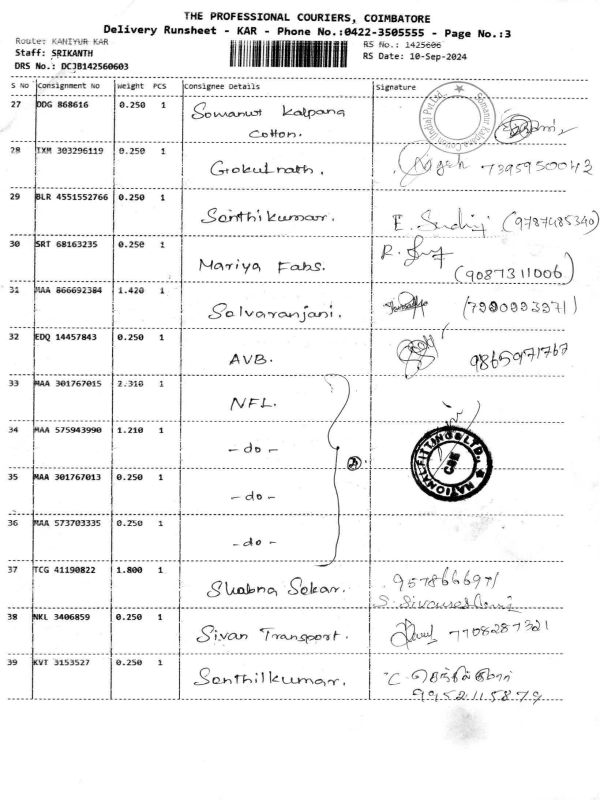 THE PROFESSIONAL COURIERS, COIMBATORE
Delivery Runsheet - KAR - Phone No.:0422-3505555 - Page No.:3
Route: KANIYUR KAR
RS No.: 1425606
Staff: SRIKANTH
RS Date: 10-Sep-2024
DRS No.: DCJB142560603
S No Consignment No Weight PCS Consignee Details Signature
27 DDG 868616 0.250 1 Somanur Kalpana
Cotton.
28 TXM 303296119 0.250 1 Gokulnath. 7395950043
29 BLR 4551552766 0.250 1 Senthilkumar. (9787485340)
30 SRT 68163235 0.250 1 Mariya Fabs. (9087311006)
31 MAA 866692384 1.420 1 Selvaranjani.
32 EDQ 14457843 0.250 1 AVB. 9865971767
33 MAA 301767015 2.310 1 NFL.
34 MAA 575943990 1.210 1 - do -
NATIONAL FITTINGS LTD., CBE
35 MAA 301767013 0.250 1 - do -
36 MAA 573703335 0.250 1 - do -
37 TCG 41190822 1.800 1 Shabna Sekar.
38 NKL 3406859 0.250 1 Sivan Transport. 7708287321
39 KVT 3153527 0.250 1 Senthilkumar. C. செந்தில்குமார்
9952115879